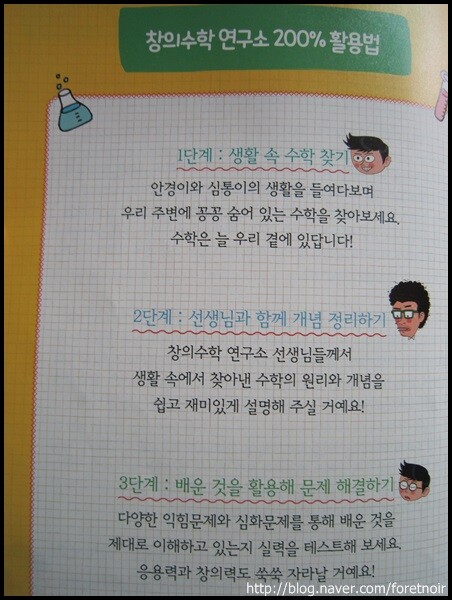 창의수학 연구소 200% 활용법
1단계 : 생활 속 수학 찾기
안경이와 심통이의 생활을 들여다보며
우리 주변에 꽁꽁 숨어 있는 수학을 찾아보세요.
수학은 늘 우리 곁에 있답니다!
2단계 : 선생님과 함께 개념 정리하기
창의수학 연구소 선생님들께서
생활 속에서 찾아낸 수학의 원리와 개념을
쉽고 재미있게 설명해 주실 거예요!
3단계 : 배운 것을 활용해 문제 해결하기
다양한 익힘문제와 심화문제를 통해 배운 것을
제대로 이해하고 있는지 실력을 테스트해 보세요.
응용력과 창의력도 쑥쑥 자라날 거예요!
http://blog.naver.com/foretnoir